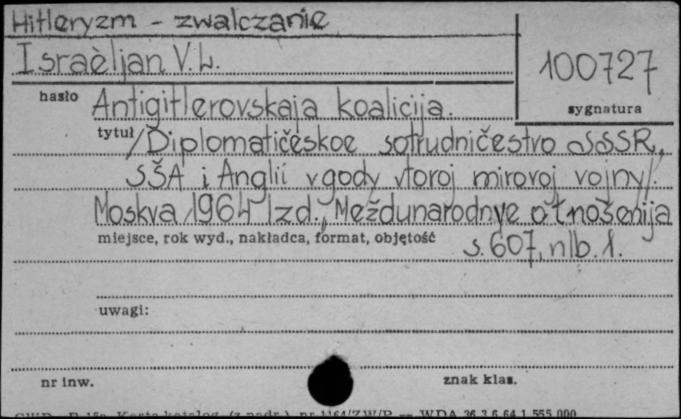 Hitleryzm - zwalczanie
Israèljan V.L.
100727
hasło
sygnatura
Antigitlerovskaja koalicija.
tytuł
/Diplomatičeskoe sotrudničestvo SSSR,
SŠA i Anglii v gody vtoroj mirovoj vojny/.
Moskva 1964 Izd. "Meždunarodnye otnošenija
miejsce, rok wyd., nakładca, format, objętość
s. 607, nlb. 1.
uwagi:
nr inw.
znak klas.